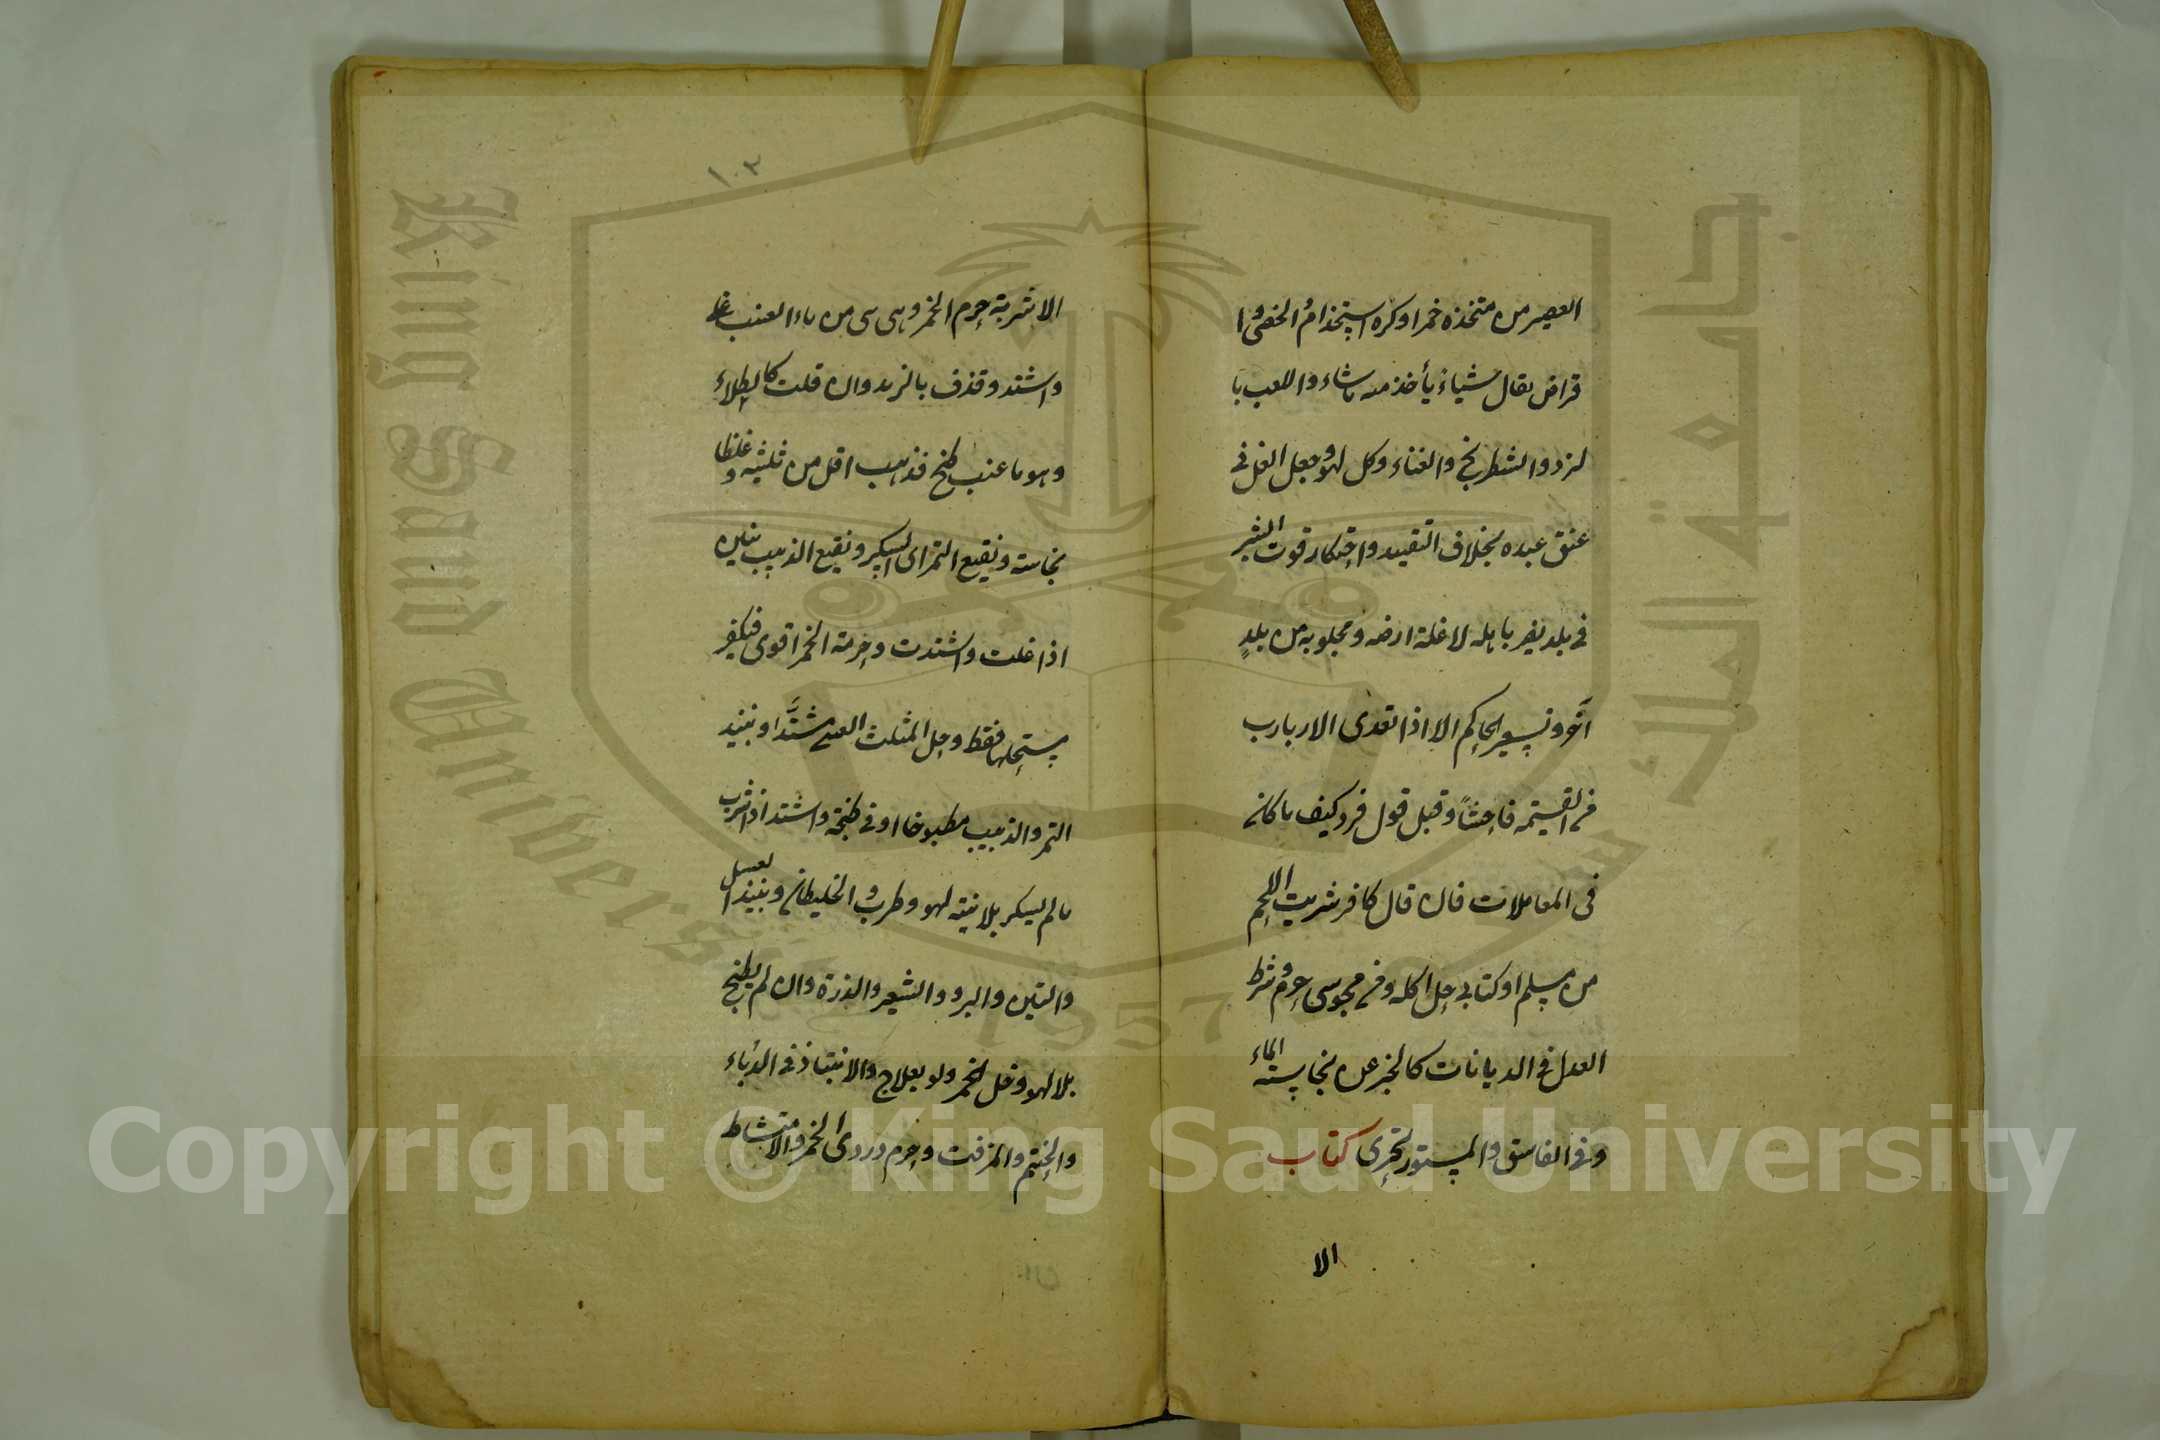 العصير من متخذه خمرا وكره استخذام الخصى وا
قراض بقال شياء يأخذ منه ما شاء واللعب با
لنرد والشطرنج والغناء وكل لهو وجعل الغل فى
عنق عبده بخلاف التقييد واحتكار قوت البشر
فى بلد يضر باهله لا غلة ارضه ومجلوبه من بلدٍ
آخر وتسعير الحاكم الا اذا تعدى الاربارب
فى القيتمه فاحشاً وقبل قول فرد كيف ما كان
فى المعاملات فان قال كافر شريت اللحم
من مسلم او كتابى حل اكله وفى مجوسى حرم وشرط
العدل فى الديانات كالخبر عن نجاسته الماء
وفى الفاسق والمستور تحرى كتاب
الا
١٠٣
الاشربة حرم الخمر وهى نى من ماء العنب غلى
واشتد وقذف بالزبد وان قلت كالطلاء
وهو ماء عنب طبخ فذهب اقل من ثلثيه وغلظا
نجاسته ونقيع التمر اى السكر ونقيع الذبيب نيئين
اذا غلت واشتدت وحرمة الخمر اقوى فيكفر
مستحلها فقط وحل المثلث العنبى مشتدًّا ونبيذ
التمر والذبيب مطبوخا ادنى طبخة واشتد اذا شرب
ما لم يسكر بلا نيته لهو وطرب والخليطان ونبيذ العسل
والتين والبر والشعير والذرة وان لم يطبخ
بلا لهو وخل الخمر ولو بعلاج والانتباذ فى الدباء
والحنتم والمزفت وحرم دردى الخمر والامتشاط
جامعة الملك سعود
King Saud University
1957
Copyright © King Saud University